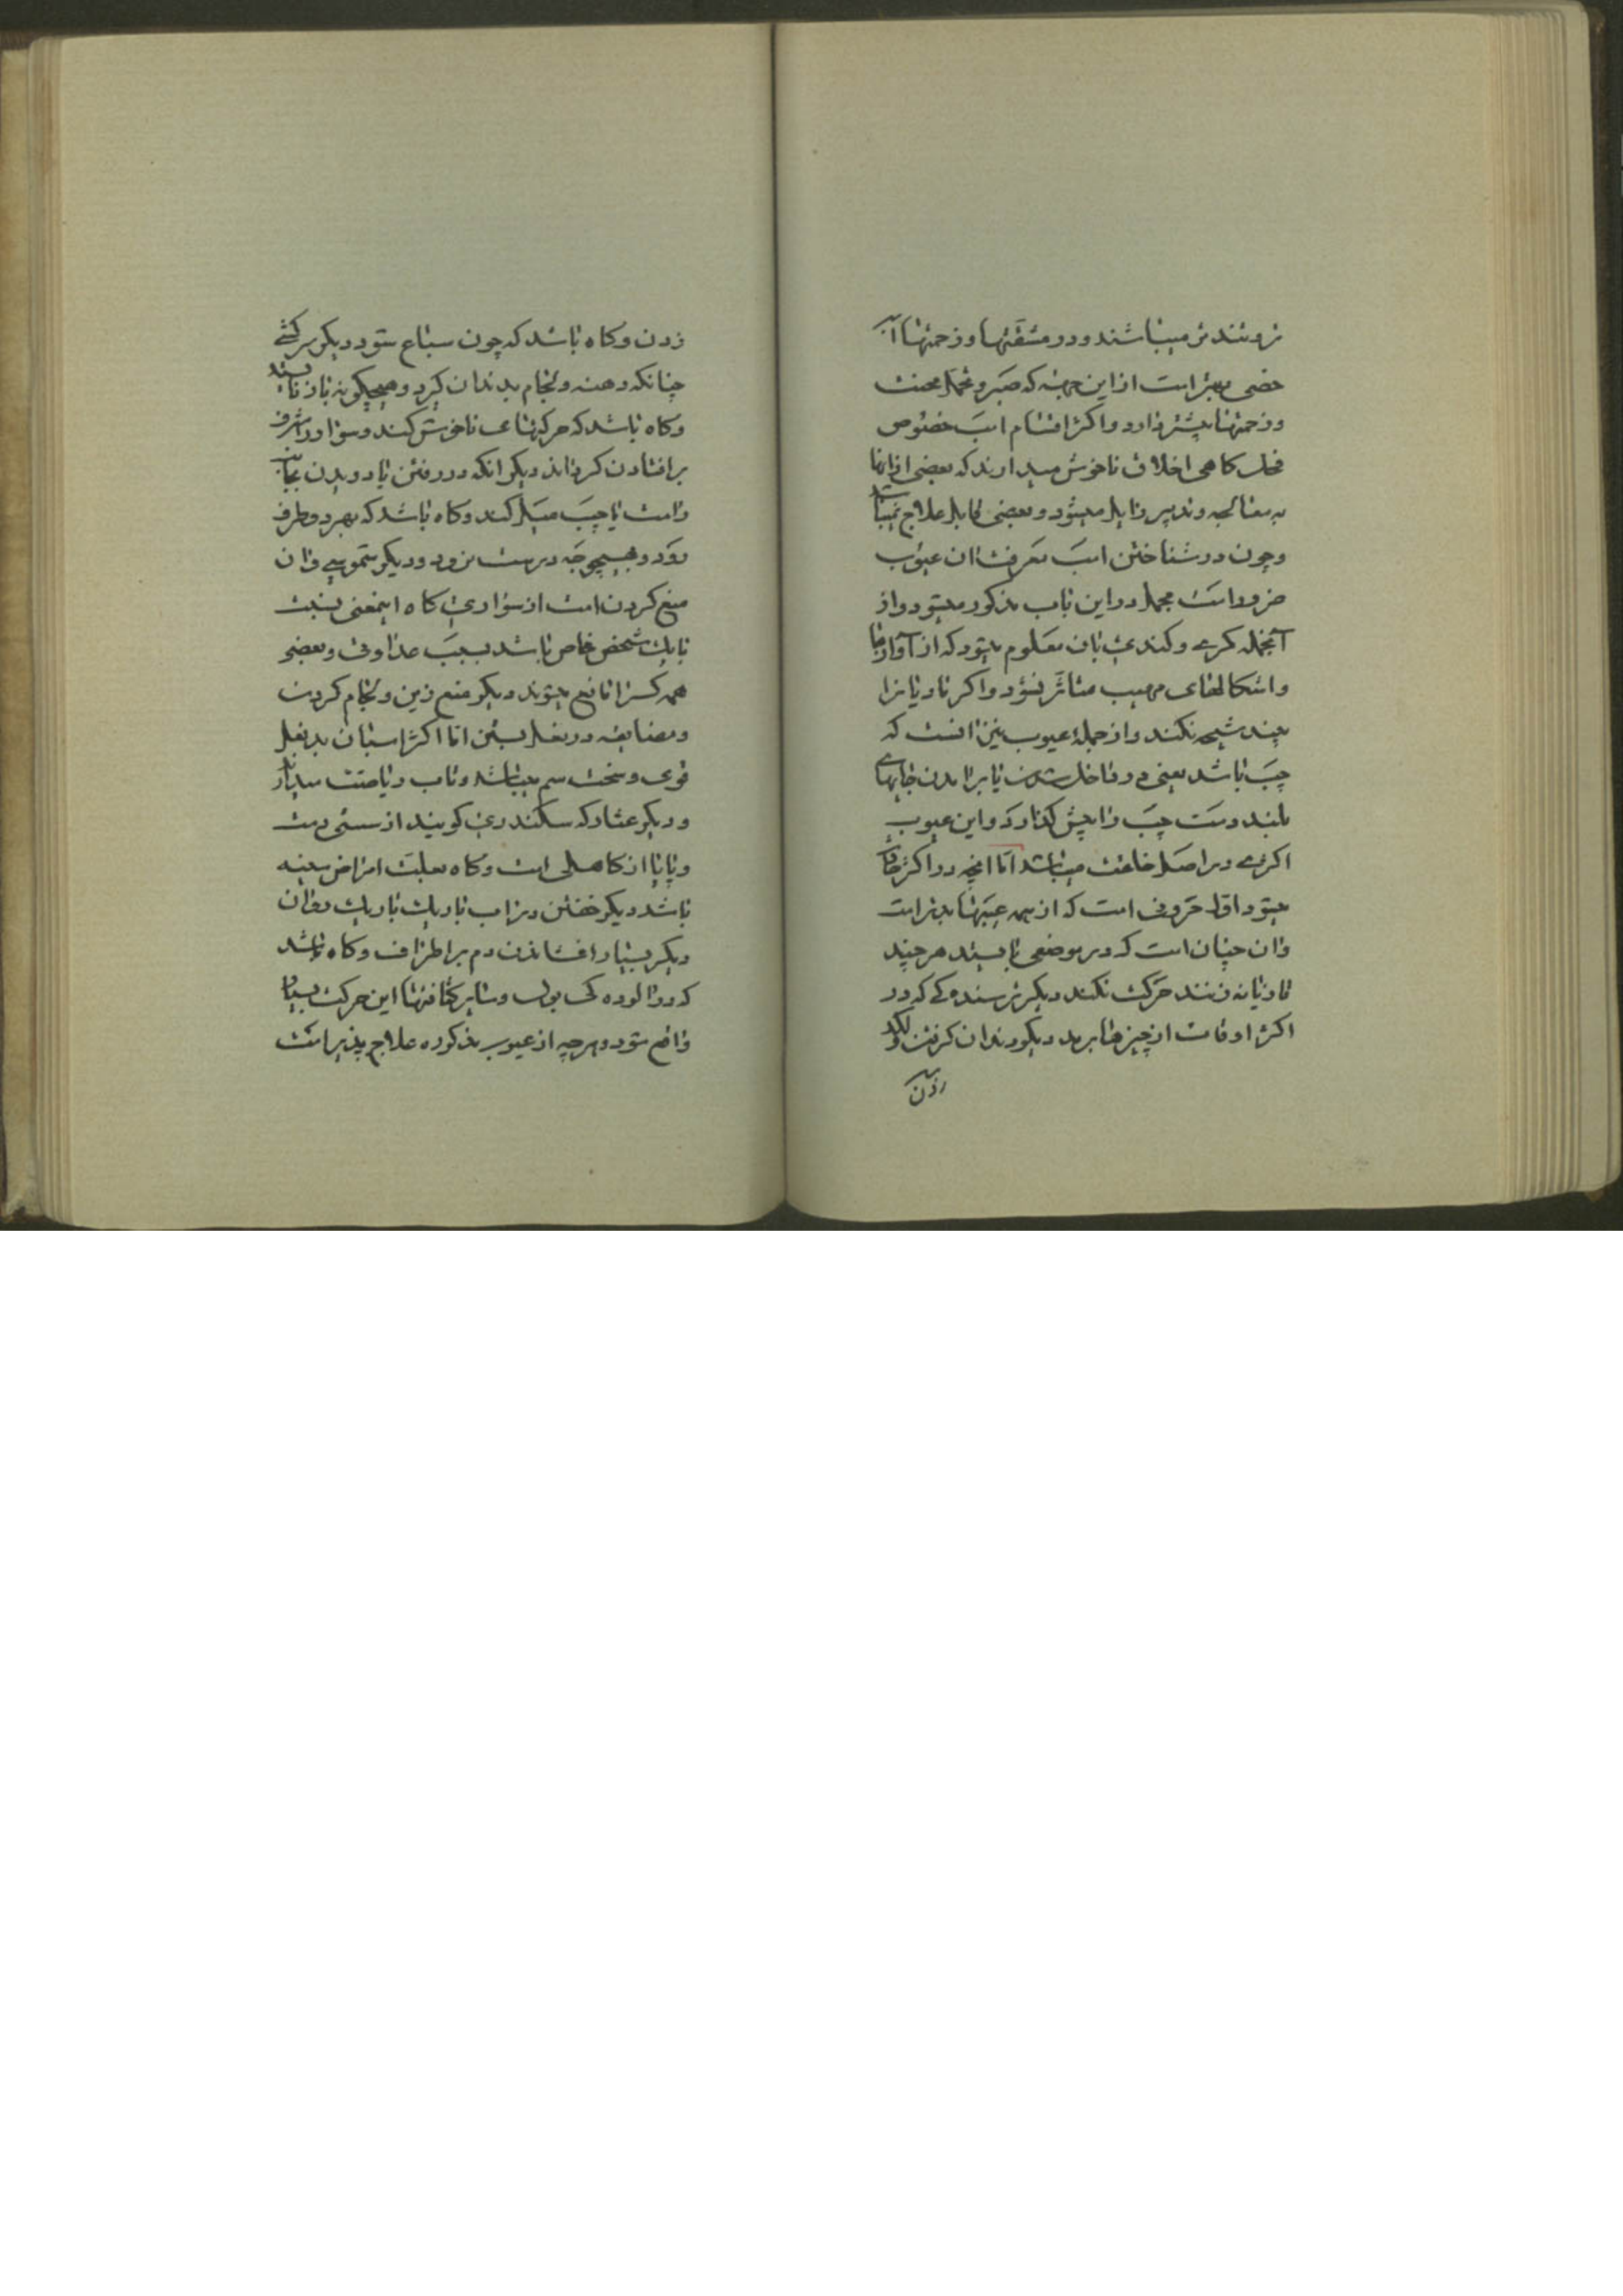 و تندتر میباشند و در مشقتها و زحمتها اسب
خصی بهتر است از این جهته که صبر و تحمل محنت
و زحمتها بیشتر دارد و اکثر اقسام اسب خصوص
فحل کاهی اخلاق ناخوش میدارند که بعضی از انها
به معالجه و تدبیر زایل میشود و بعضی قابل علاج نمیباشد
و چون در شناختن اسب معرفت ان عیوب
ضرور است مجمل در این باب مذکور میشود و از
آنجمله کری و کندی بان معلوم میشود که از آوازها
و اشکالهای مهیب متاثر نشود و اکر مادیانرا
بیند شیهه نکند و از جملهٔ عیوب نیز انست که
چپ باشد یعنی در داخل شدن یا برامدن جایهای
بلند دست چپ را پیش کذارد و این عیوب
اکثری در اصل خلقت میباشد اما انچه در اکثر
میشود اول حرونی است که از همه عیبها بدتر است
و ان چنان است که در موضعی بایستد هر چند
تازیانه زنند حرکت نکند دیکر ترسندکی که در
اکثر اوقات از چیزها برمد دیکر دندان کرفتن و لکد
زدن
زدن و کاه باشد که چون سباع شود دیکر سرکشی
چنانکه دهنه و لجام بدندان کیرد و هیچکونه باز نایستد
و کاه باشد که حرکتهای ناخوش کند و سوار را مشرف
بر افتادن کرداند دیکر انکه در رفتن یا دویدن بجانب
راست یا چپ میل کند و کاه باشد که بهر دو طرف
رود و بهیچوجه درست نرود و دیکر شموسی و ان
منع کردن است از سواری کاه اینمعنی نسبت
بایک شخص خاص باشد بسبب عداوتی و بعضی
همه کسرا مانع میشوند دیکر منع زین و لجام کردن
و مضایقه در نعل بستن اما اکثر اسبان بدنعل
قوی و سخت سم میباشد و تاب ریاضت میدارد
و دیکر عثار که سکندری کویند از سستی دست
و پا یا از کاهلی است و کاه بعلت امراض
باشد دیکر خفتن در اب باریک باریک روان
دیکر بسیار افشاندن دم بر اطراف و کاه باشد
که در الوده کی بول و سایر کثافتها این حرکت بسیار
واقع شود و هر چه از عیوب مذکوره علاج پذیر است